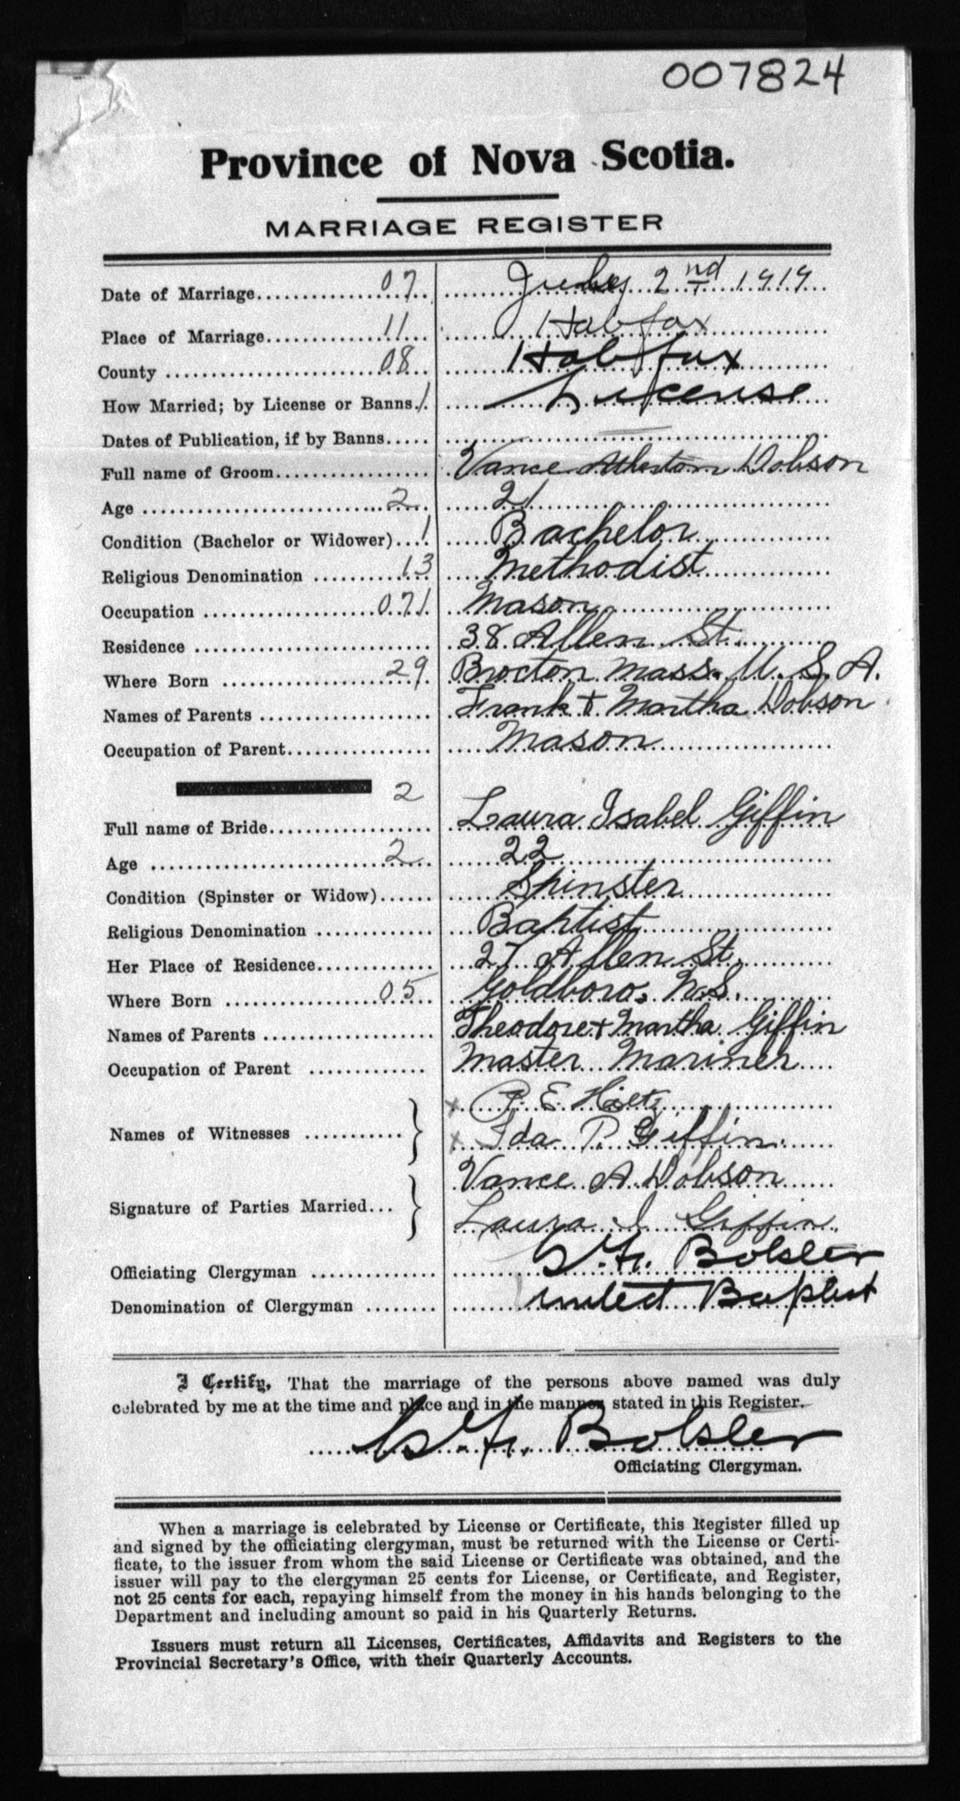 007824
Province of Nova Scotia.
MARRIAGE REGISTER
Date of Marriage 07 July 2nd 1919
Place of Marriage 11 Halifax
County 08 Halifax
How Married; by License or Banns 1 License
Dates of Publication, if by Banns
Full name of Groom Vance Atherton Dobson
Age 2 21
Condition (Bachelor or Widower) 1 Bachelor
Religious Denomination 13 Methodist
Occupation 071 Mason
Residence 38 Allen St.
Where Born 29 Brocton Mass. U. S. A.
Names of Parents Frank + Martha Dobson
Occupation of Parent Mason
2
Full name of Bride Laura Isabel Giffin
Age 2 22
Condition (Spinster or Widow) Spinster
Religious Denomination Baptist
Her Place of Residence 27 Allen St.
Where Born 05 Goldboro, N.S.
Names of Parents Theodore + Martha Giffin
Occupation of Parent Master Mariner
x E
Names of Witnesses x Ida P. Giffin
Vance A Dobson
Signature of Parties Married Laura I Giffin
Officiating Clergyman Bolster
Denomination of Clergyman United Baptist
I Certify, That the marriage of the persons above named was duly
celebrated by me at the time and place and in the manner stated in this Register.
Bolster
Officiating Clergyman.
When a marriage is celebrated by License or Certificate, this Register filled up
and signed by the officiating clergyman, must be returned with the License or Certi-
ficate, to the issuer from whom the said License or Certificate was obtained, and the
issuer will pay to the clergyman 25 cents for License, or Certificate, and Register,
not 25 cents for each, repaying himself from the money in his hands belonging to the
Department and including amount so paid in his Quarterly Returns.
Issuers must return all Licenses, Certificates, Affidavits and Registers to the
Provincial Secretary's Office, with their Quarterly Accounts.